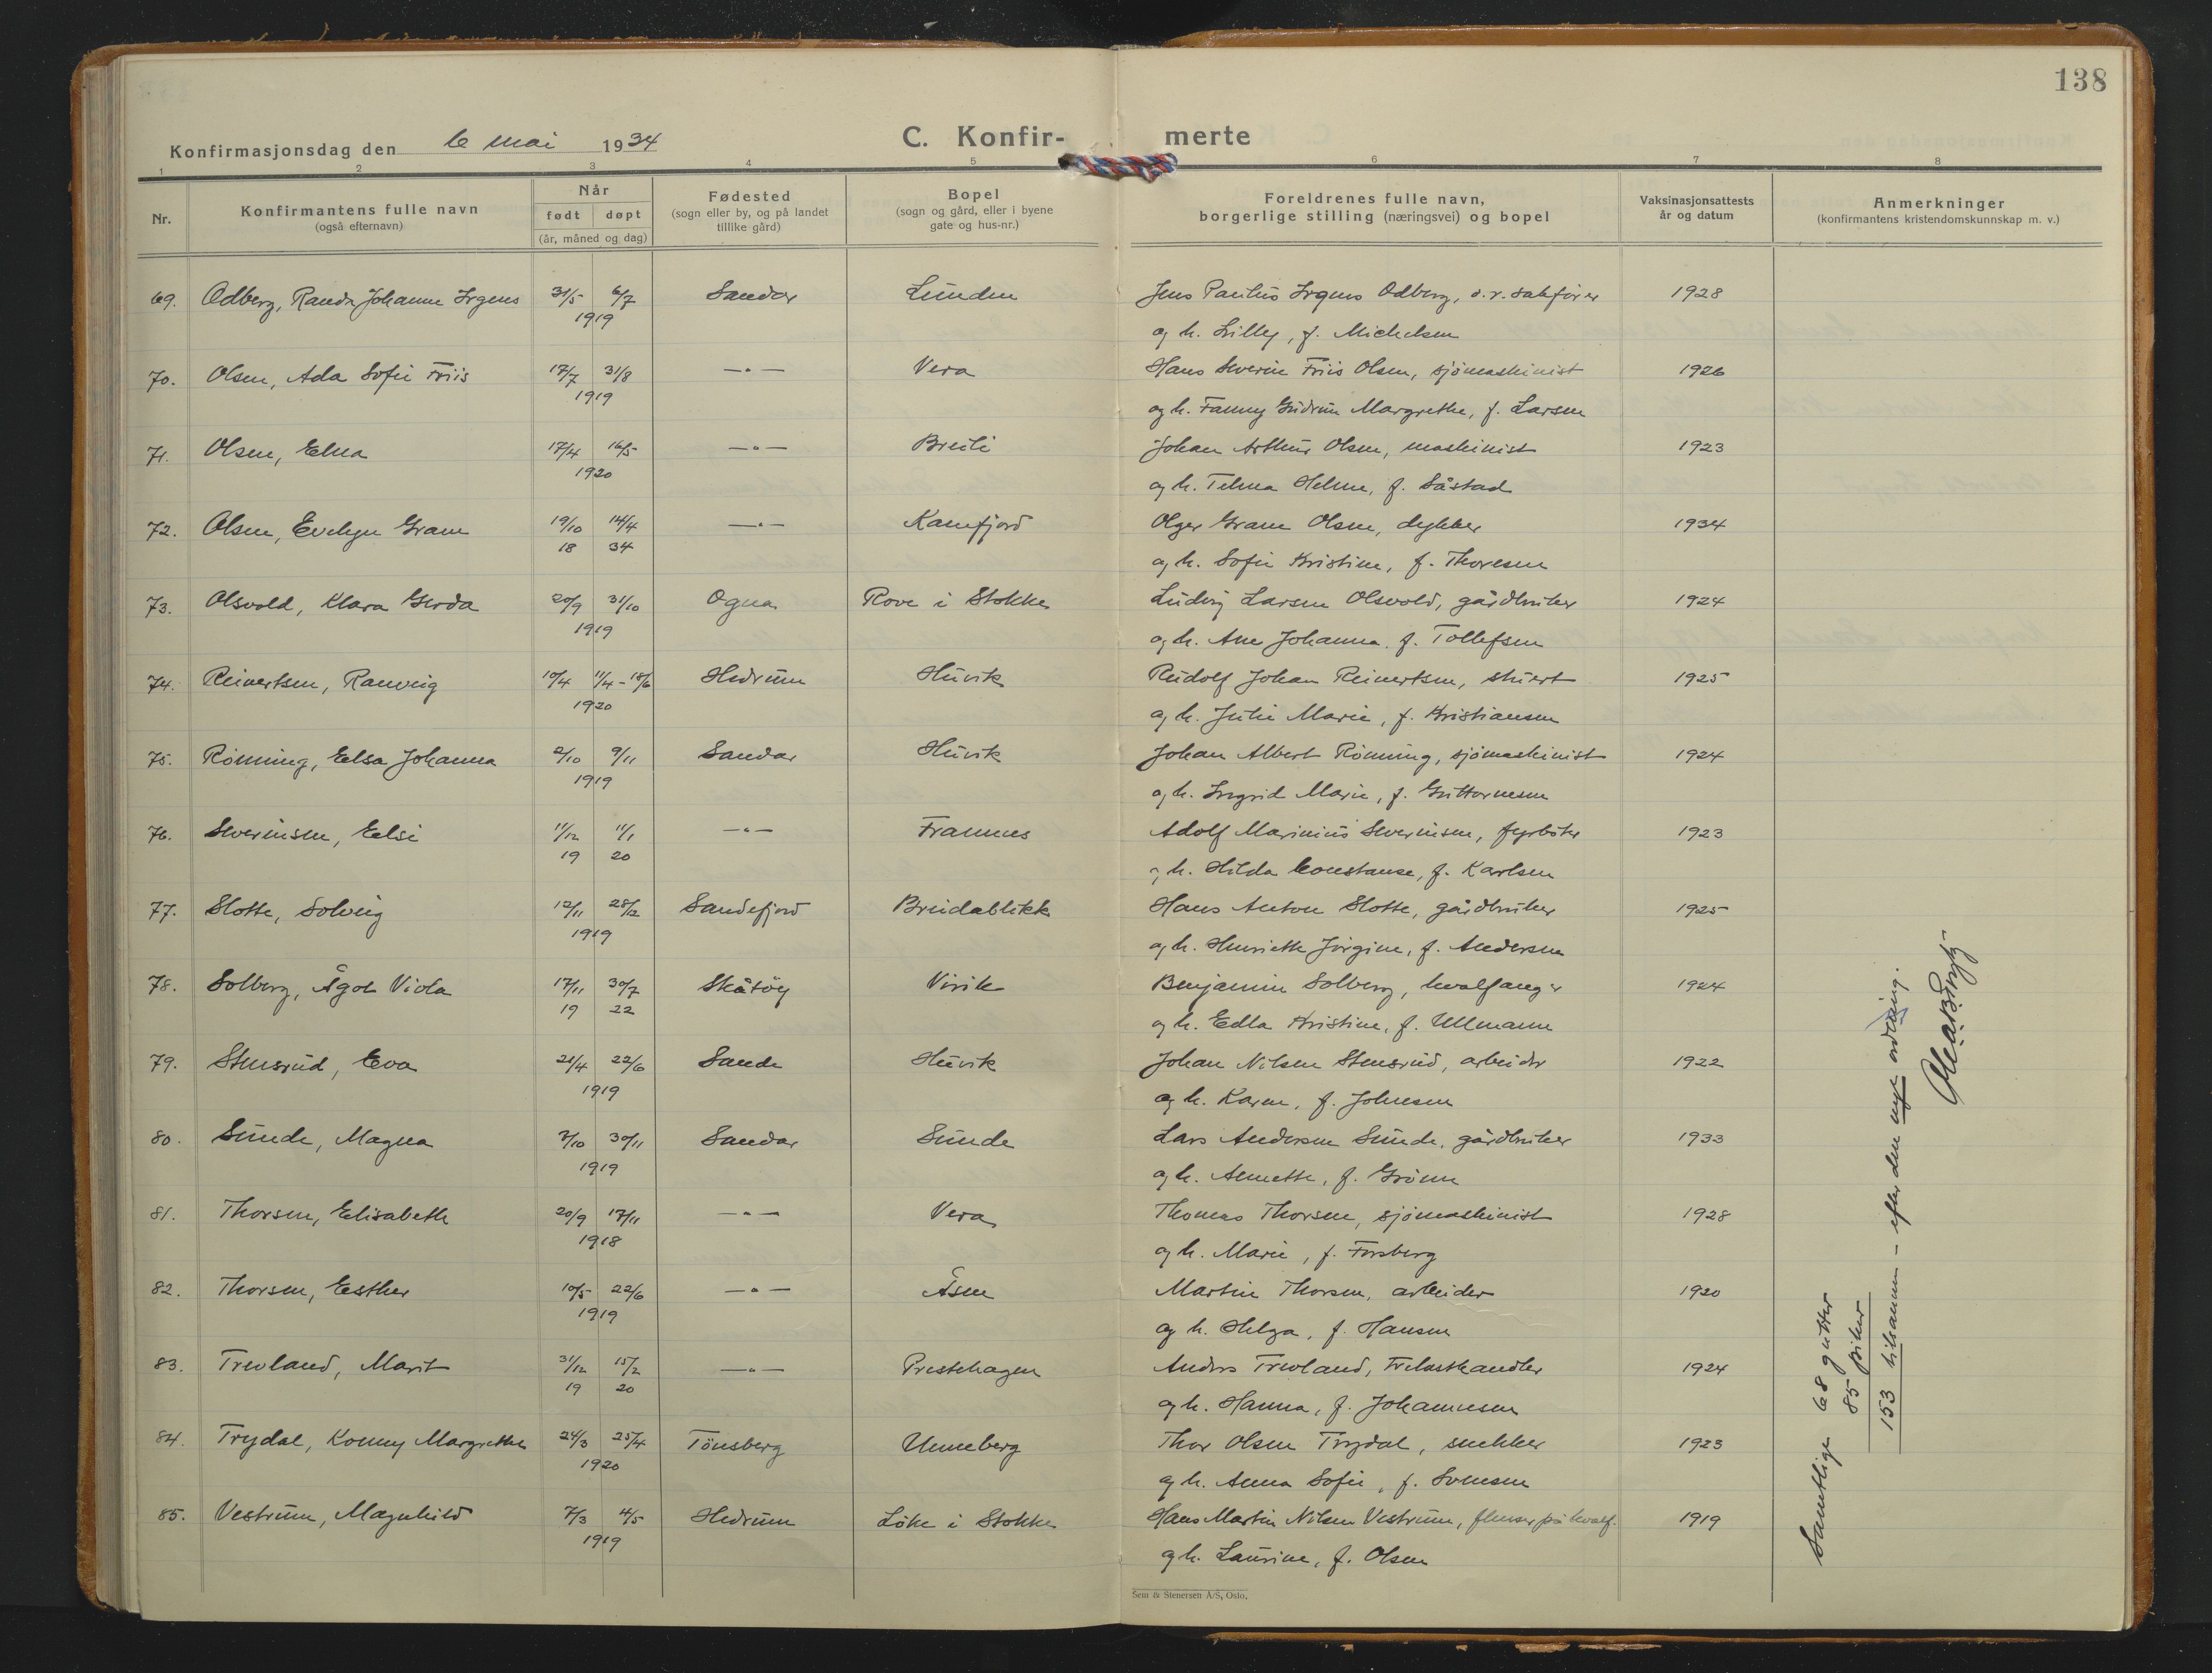 138
Konfirmasjonsdag den 6 mai 1934
C. Konfir- merte
1 2 3 4 5 6 7 8
Nr.
Konfirmantens fulle navn
(også efternavn)
Når
født døpt
(år, måned og dag)
Fødested
(sogn eller by, og på landet
tillike gård)
Bopel
(sogn og gård, eller i byene
gate og hus-nr.)
Foreldrenes fulle navn,
borgerlige stilling (næringsvei) og bopel
Vaksinasjonsattests
år og datum
Anmerkninger
(konfirmantens kristendomskunnskap m. v.)
69. Odberg, Randi Johanne Irgens 31/5 6/7 Sandar Lunden Jens Paulus Irgens Odberg, o.r. sakfører 1928
1919 og h. Lilly, f. Michelsen
70. Olsen, Ada Sofie Friis 17/7 31/8 —"— Vera Hans Severin Friis Olsen, sjömaskinist 1926
1919 og h. Fanny Gudrun Margrethe, f. Larsen
71. Olsen, Elna 17/4 16/5 —"— Breili Johan Arthur Olsen, maskinist 1923
1920 og h. Telma Helene, f. Såstad
72. Olsen, Evelyn Gram 19/10 14/4 —"— Kamfjord Olger Gram Olsen, dykker 1934
18 34 og h. Sofie Kristine, f. Thoresen
73. Olsvold, Klara Gerda 20/9 31/10 Ogna Rove i Stokke Ludvig Larsen Olsvold, gårdbruker 1924
1919 og h. Ane Johanna. f. Tollefsen
74. Reinertsen, Ranveig 10/4 11/4 - 18/6 Hedrum Huvik Rudolf Johan Reinertsen, stuert 1925
1920 og h. Julie Marie, f. Kristiansen
75. Rönning, Elsa Johanna 2/10 9/11 Sandar Huvik Johan Albert Rönning, sjömaskinist 1924
1919 og h. Ingrid Marie, f. Guttormsen
76. Severinsen, Elsi 11/12 11/1 —"— Framnes Adolf Marinius Severinsen, fyrböter 1923
19 20 og h. Hilda Constanse, f. Karlsen
77. Slotte, Solveig 12/11 28/12 Sandefjord Breidablikk Hans Anton Slotte, gårdbruker 1925
1919 og h. Henriette Jörgine, f. Andersen
78. Solberg, Ågot Viola 17/11 30/7 Skåtöy Virik Benjamin Solberg, hvalfanger 1924
19 22 og h. Edla Kristine, f. Ullmann
79. Stensrud, Eva 21/4 22/6 Sande Huvik Johan Nilsen Stensrud, arbeider 1922
1919 og h. Karen, f. Johnsen
80. Sunde, Magna 7/10 30/11 Sandar Sunde Lars Andersen Sunde, gårdbruker 1933
1919 og h. Annette, f. Grönn
81. Thorsen, Elisabeth 20/9 17/11 —"— Vera Thomas Thorsen, sjömaskinist 1928
1918 og h. Marie, f. Forsberg
82. Thorsen, Esther 10/5 22/6 —"— Åsen Martin Thorsen, arbeider 1920
1919 og h. Helga, f. Hansen
83. Trevland, Marit 31/12 15/2 —"— Prestehagen Anders Trevland, trelasthandler 1924
19 20 og h. Hanna, f. Johannesen
84. Trydal, Konny Margrethe 24/3 25/4 Tönsberg Unneberg Thor Olsen Trydal, snekker 1923
1920 og h. Anna Sofie, f. Svensen
85. Vestrum, Magnhild 7/3 4/5 Hedrum Löke i Stokke Hans Martin Nilsen Vestrum, flenser på hvalf. 1919
1919 og h. Laurine, f. Olsen
Samtlige 68 gutter
85 piker
153 tilsammen – efter den nye ordning.
Sem & Stenersen A/S, Oslo.